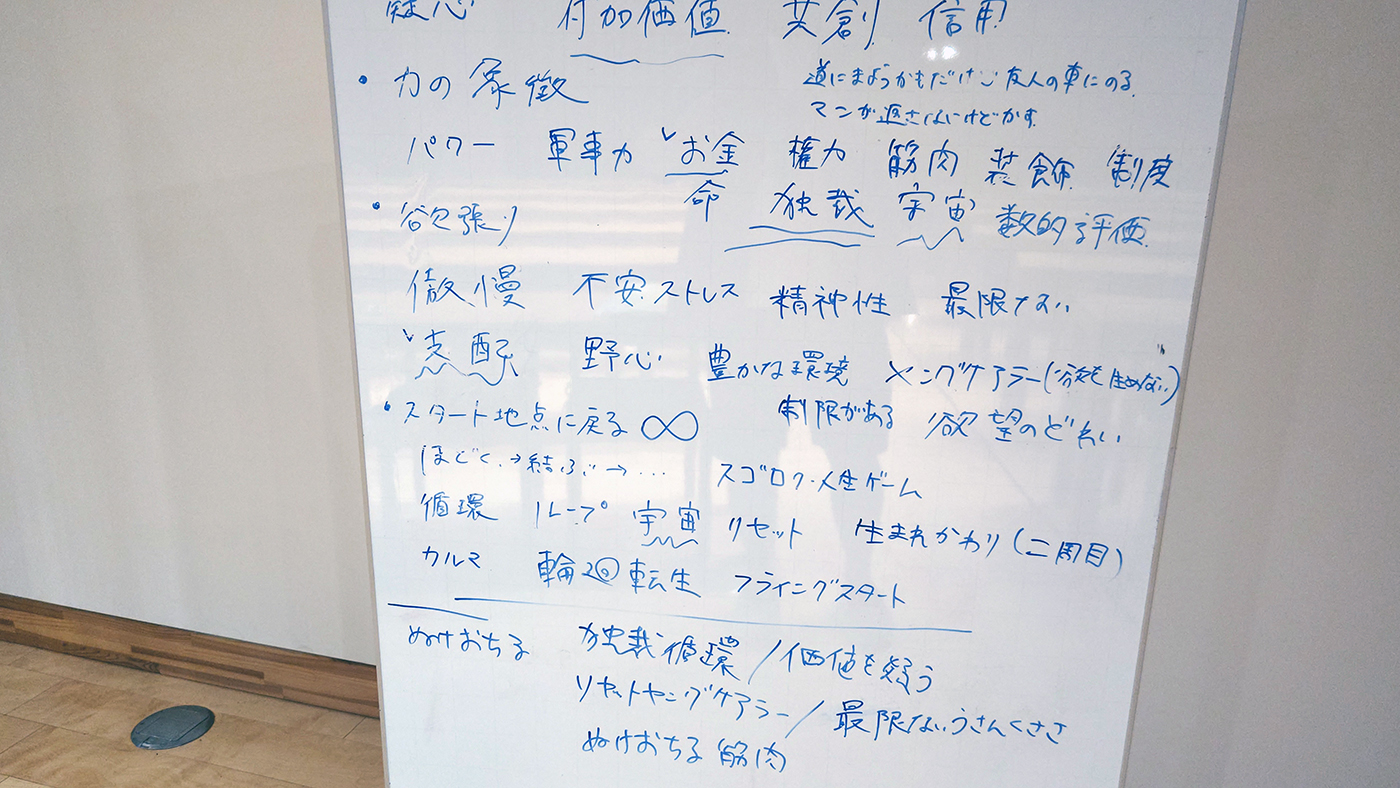 疑心 付加価値 共創 信用
道にまようかもだけど友人の車にのる
マンガ返さないけどかす
・力の象徴
パワー 軍事力 お金 権力 筋肉 装飾 制度
命 独裁 宇宙 数的評価
・欲張り
傲慢 不安ストレス 精神性 最限ない
支配 野心 豊かな環境 ヤングケアラー(欲を生めない)
制限がある 欲望のどれい
・スタート地点に戻る ∞
ほぐく→結ぶ→… スゴロク・人生ゲーム
循環 ループ 宇宙 リセット 生まれかわり(二周目)
カルマ 輪廻転生 フライングスタート
ぬけおちる 独裁循環/価値を疑う
リセットヤングケアラー/最限ないうさんくささ
ぬけおちる筋肉